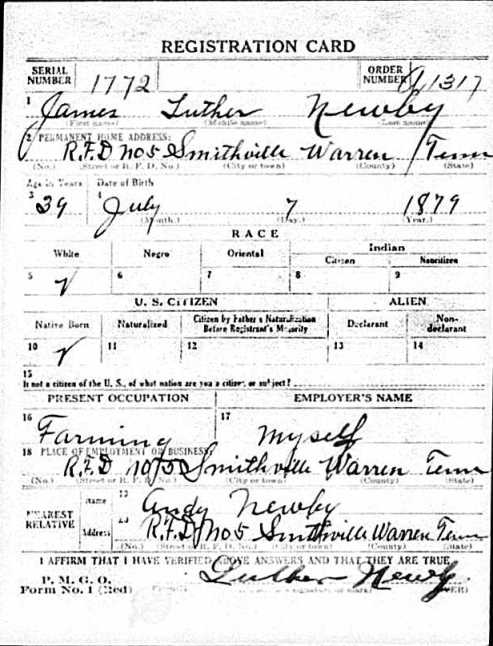 REGISTRATION CARD
SERIAL NUMBER 1772 ORDER NUMBER A1317
1 James Luther Newby
(First name) (Middle name) (Last name)
2 PERMANENT HOME ADDRESS:
R.F.D No 5 Smithville Warren Tenn
(No.) (Street or R. F. D. No.) (City or town) (County) (State)
Age in Years Date of Birth
3 39 4 July 7 1879
(Month.) (Day.) (Year.)
RACE
White Negro Oriental Indian
Citizen Noncitizen
5 √ 6 7 8 9
U. S. CITIZEN ALIEN
Native Born Naturalized Citizen by Father's Naturalization Before Registrant's Majority Declarant Non-declarant
10 √ 11 12 13 14
15
Is not a citizen of the U. S., of what nation are you a citizen or subject?
PRESENT OCCUPATION EMPLOYER'S NAME
16 Farming 17 Myself
18 PLACE OF EMPLOYMENT OR BUSINESS:
R.F.D No 5 Smithville Warren Tenn
(No.) (Street or R. F. D. No.) (City or town) (County) (State)
NEAREST RELATIVE Name 19 Andy Newby
Address 20 R.F.D No 5 Smithville Warren Tenn
(No.) (Street or R. F. D. No.) (City or town) (County) (State)
I AFFIRM THAT I HAVE VERIFIED ABOVE ANSWERS AND THAT THEY ARE TRUE
P. M. G. O.
Form No. 1 (Red) Luther Newby